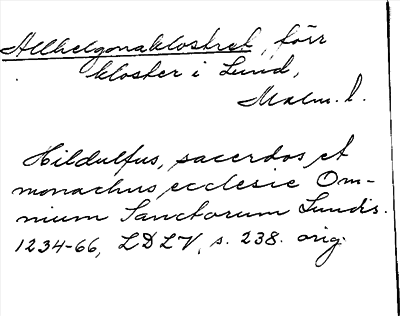 Allhelgonaklostret, förr
kloster i Lund,
Malm. l.
Hildulfus, sacerdos et
monachus ecclesie Om-
nium Sanctorum Lundis.
1234-66, LDLV, s. 238. orig.